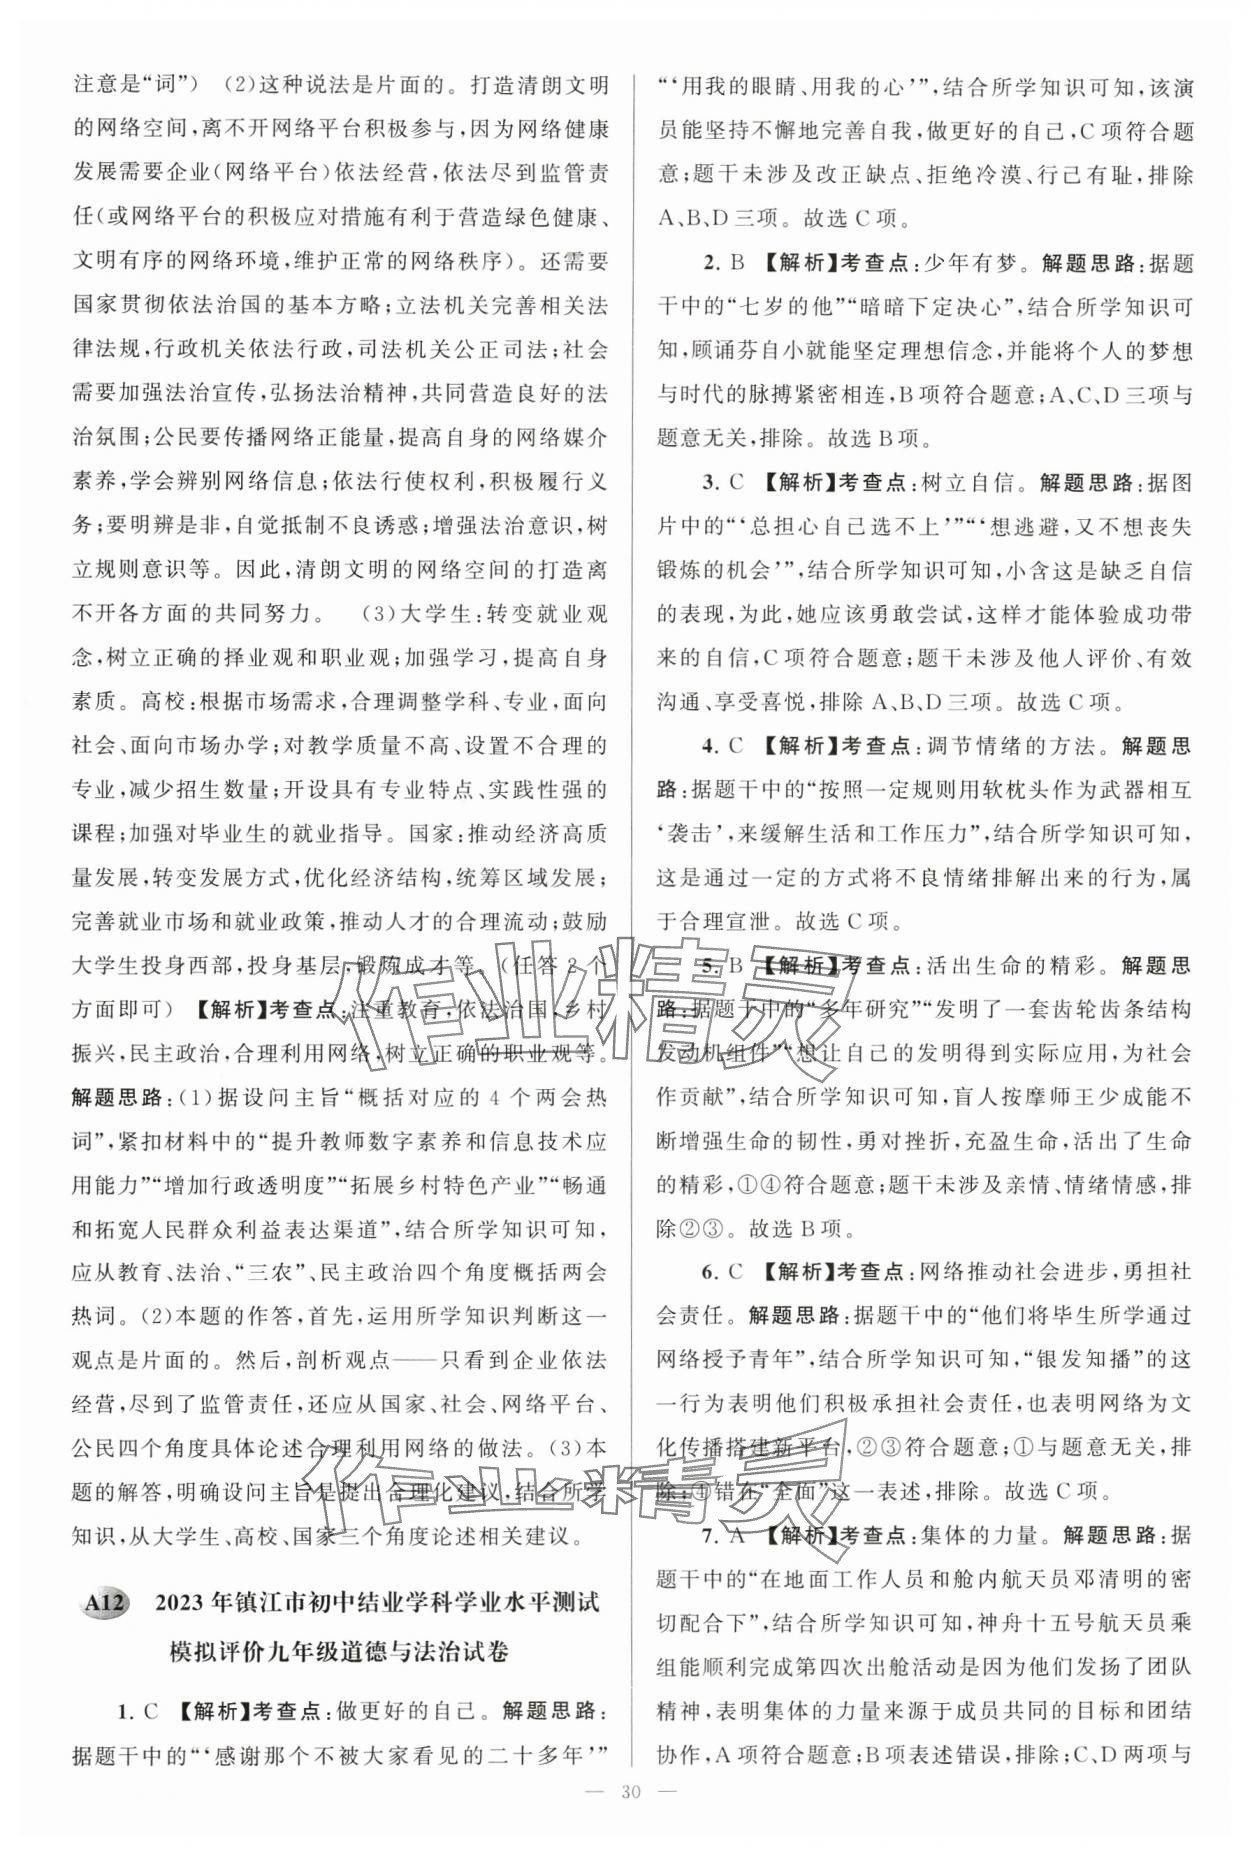 注意是“词”) (2)这种说法是片面的。打造清朗文明
的网络空间,离不开网络平台积极参与,因为网络健康
发展需要企业(网络平台)依法经营,依法尽到监管责
任(或网络平台的积极应对措施有利于营造绿色健康、
文明有序的网络环境,维护正常的网络秩序)。还需要
国家贯彻依法治国的基本方略;立法机关完善相关法
律法规,行政机关依法行政,司法机关公正司法;社会
需要加强法治宣传,弘扬法治精神,共同营造良好的法
治氛围;公民要传播网络正能量,提高自身的网络媒介
素养,学会辨别网络信息;依法行使权利,积极履行义
务;要明辨是非,自觉抵制不良诱惑;增强法治意识,树
立规则意识等。因此,清朗文明的网络空间的打造离
不开各方面的共同努力。 (3)大学生:转变就业观
念,树立正确的择业观和职业观;加强学习,提高自身
素质。高校:根据市场需求,合理调整学科、专业,面向
社会、面向市场办学;对教学质量不高、设置不合理的
专业,减少招生数量;开设具有专业特点、实践性强的
课程;加强对毕业生的就业指导。国家:推动经济高质
量发展,转变发展方式,优化经济结构,统筹区域发展;
完善就业市场和就业政策,推动人才的合理流动;鼓励
大学生投身西部,投身基层,锻炼成才等。(任答2个
方面即可) 【解析】考查点:注重教育,依法治国,乡村
振兴,民主政治,合理利用网络,树立正确的职业观等。
解题思路:(1)据设问主旨“概括对应的4个两会热
词”,紧扣材料中的“提升教师数字素养和信息技术应
用能力”“增加行政透明度”“拓展乡村特色产业”“畅通
和拓宽人民群众利益表达渠道”,结合所学知识可知,
应从教育、法治、“三农”、民主政治四个角度概括两会
热词。(2)本题的作答,首先,运用所学知识判断这一
观点是片面的。然后,剖析观点——只看到企业依法
经营,尽到了监管责任,还应从国家、社会、网络平台、
公民四个角度具体论述合理利用网络的做法。(3)本
题的解答,明确设问主旨是提出合理化建议,结合所学
知识,从大学生、高校、国家三个角度论述相关建议。
A12 2023年镇江市初中结业学科学业水平测试
模拟评价九年级道德与法治试卷
1. C 【解析】考查点:做更好的自己。解题思路:
据题干中的“‘感谢那个不被大家看见的二十多年’”
“‘用我的眼睛、用我的心’”,结合所学知识可知,该演
员能坚持不懈地完善自我,做更好的自己,C项符合题
意;题干未涉及改正缺点、拒绝冷漠、行己有耻,排除
A、B、D三项。故选C项。
2. B 【解析】考查点:少年有梦。解题思路:据题
干中的“七岁的他”“暗暗下定决心”,结合所学知识可
知,顾诵芬自小就能坚定理想信念,并能将个人的梦想
与时代的脉搏紧密相连,B项符合题意;A、C、D三项与
题意无关,排除。故选B项。
3. C 【解析】考查点:树立自信。解题思路:据图
片中的“‘总担心自己选不上’”“‘想逃避,又不想丧失
锻炼的机会’”,结合所学知识可知,小含这是缺乏自信
的表现,为此,她应该勇敢尝试,这样才能体验成功带
来的自信,C项符合题意;题干未涉及他人评价、有效
沟通、享受喜悦,排除A、B、D三项。故选C项。
4. C 【解析】考查点:调节情绪的方法。解题思
路:据题干中的“按照一定规则用软枕头作为武器相互
‘袭击’,来缓解生活和工作压力”,结合所学知识可知,
这是通过一定的方式将不良情绪排解出来的行为,属
于合理宣泄。故选C项。
5. B 【解析】考查点:活出生命的精彩。解题思
路:据题干中的“多年研究”“发明了一套齿轮齿条结构
发动机组件”“想让自己的发明得到实际应用,为社会
作贡献”,结合所学知识可知,盲人按摩师王少成能不
断增强生命的韧性,勇对挫折,充盈生命,活出了生命
的精彩,①④符合题意;题干未涉及亲情、情绪情感,排
除②③。故选B项。
6. C 【解析】考查点:网络推动社会进步,勇担社
会责任。解题思路:据题干中的“他们将毕生所学通过
网络授予青年”,结合所学知识可知,“银发知播”的这
一行为表明他们积极承担社会责任,也表明网络为文
化传播搭建新平台,②③符合题意;①与题意无关,排
除;④错在“全面”这一表述,排除。故选C项。
7. A 【解析】考查点:集体的力量。解题思路:据
题干中的“在地面工作人员和舱内航天员邓清明的密
切配合下”,结合所学知识可知,神舟十五号航天员乘
组能顺利完成第四次出舱活动是因为他们发扬了团队
精神,表明集体的力量来源于成员共同的目标和团结
协作,A项符合题意;B项表述错误,排除;C、D两项与
— 30 —
作业精灵
作业精灵